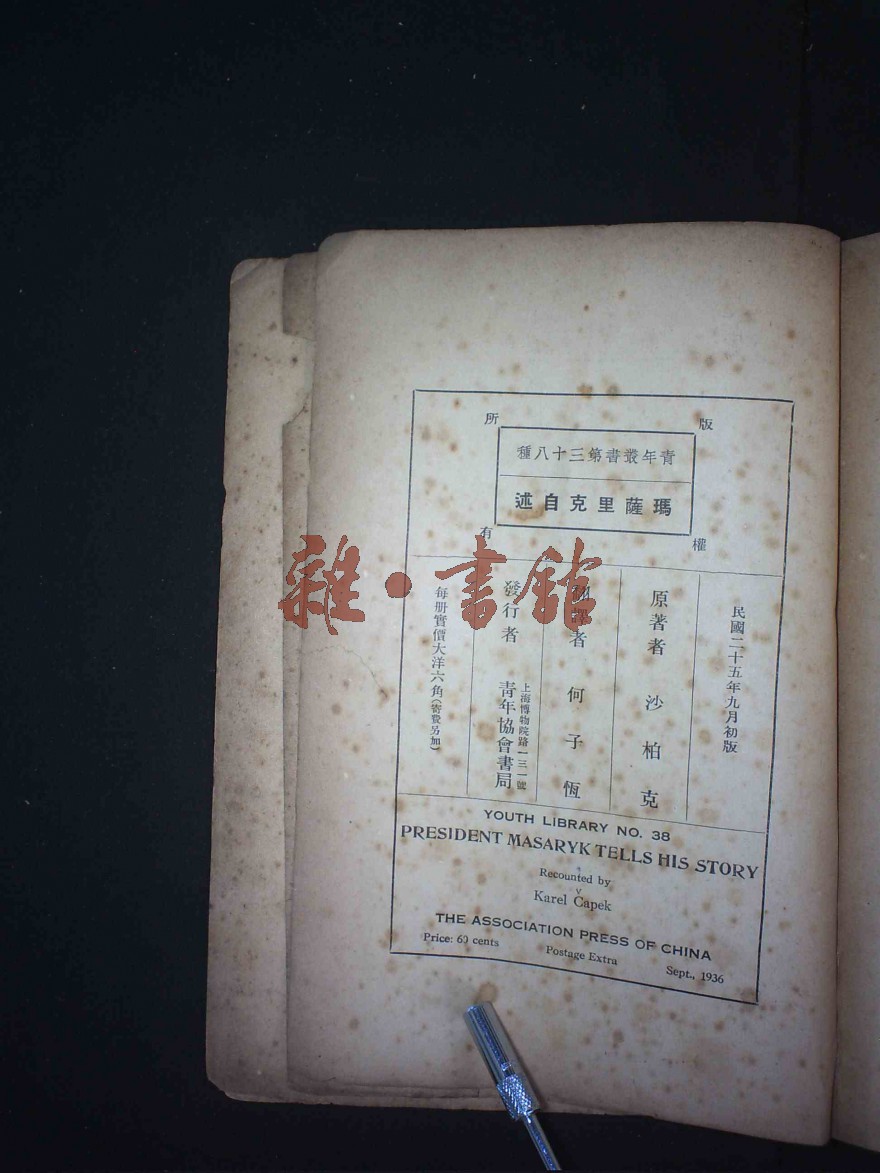 版權所有
青年叢書第三十八種
瑪薩里克自述
民國二十五年九月初版
原著者 沙柏克
翻譯者 何子恆
發行者 上海博物院路一三一號 青年協會書局
每册實價大洋六角(寄費另加)
雜·書館
YOUTH LIBRARY NO. 38
PRESIDENT MASARYK TELLS HIS STORY
Recounted by
Karel Čapek
THE ASSOCIATION PRESS OF CHINA
Price: 60 cents Postage Extra Sept., 1936